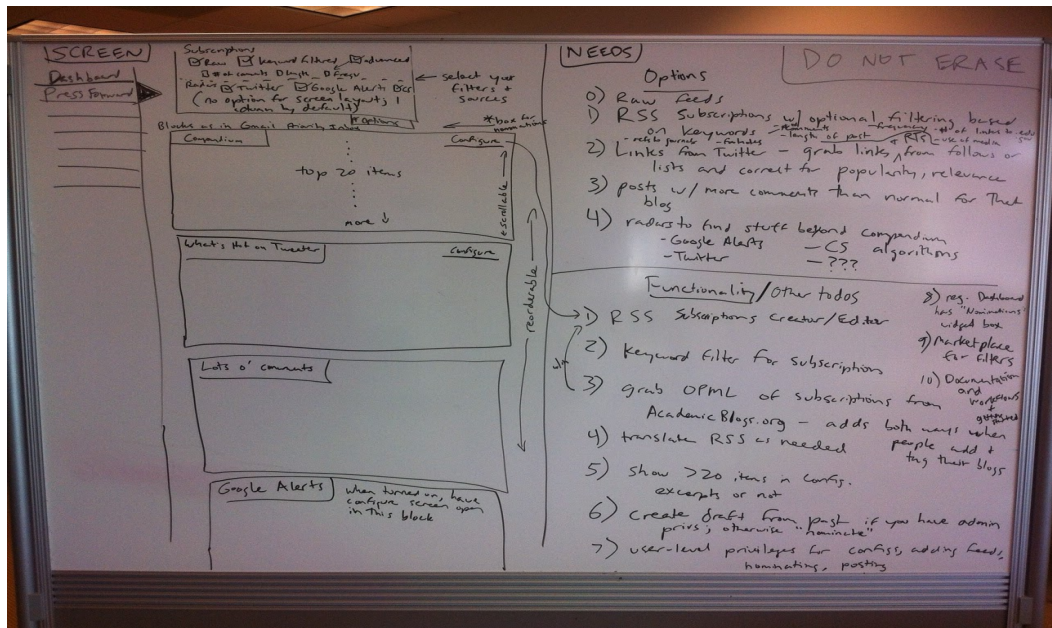 SCREEN
Dashboard
PressForward
Subscriptions
Raw Keyword filtered advanced
# of comments Length Freqv
Radars Twitter Google Alerts CS
(no option for screen layout; 1
column by default)
Options
← select your
filters +
sources
* box for
nominations
Blocks as in Gmail Priority Inbox
Compendium
Configure
top 20 items
more ↓
← scrollable →
← reorderable →
What's Hot on Tweeter
Configure
Lots o' comments
Google Alerts
when turned on, have
configure screen open
in this block
NEEDS
DO NOT ERASE
Options
0) Raw feeds
1) RSS Subscriptions w/ optional filtering based
on keywords
- length of post
- use of media
2) Links from Twitter – grab links, from follows or
RTs
lists and correct for popularity, relevance
3) posts w/ more comments than normal for that
blog
4) radars to find stuff beyond compendium
- Google Alerts
- Twitter
- CS
algorithms
- ???
Functionality/Other todos
1) RSS Subscriptions Creator/Editor
2) Keyword filter for subscription
3) grab OPML of subscriptions from
AcademicBlogs.org – adds both ways when
people add +
tag their blogs
4) translate RSS as needed
5) show >20 items in config.
excerpts or not
6) create draft from post if you have admin
privs; otherwise "nominate"
7) user-level privileges for configs, adding feeds,
nominating, posting
8) reg. Dashboard
has "Nominations"
widget box
9) Marketplace
for filters
10) Documentation
and
workflows
+